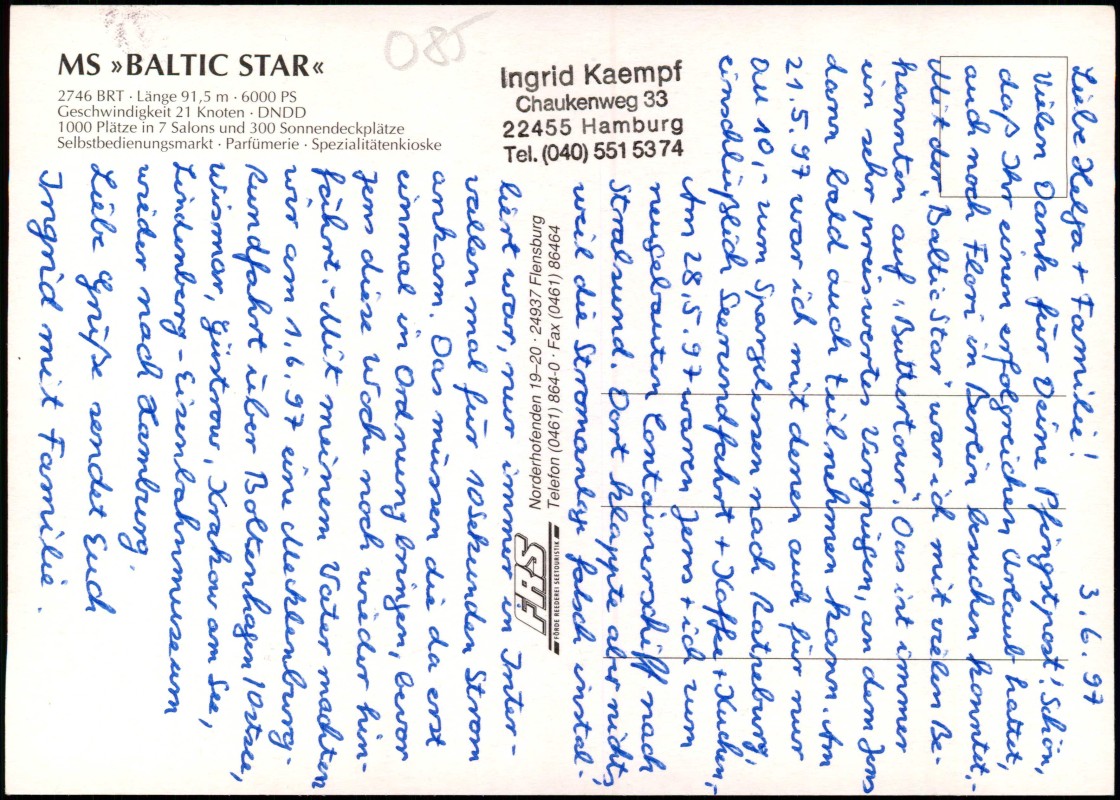 085
MS »BALTIC STAR«
2746 BRT · Länge 91,5 m · 6000 PS
Geschwindigkeit 21 Knoten · DNDD
1000 Plätze in 7 Salons und 300 Sonnendeckplätze
Selbstbedienungsmarkt · Parfümerie · Spezialitätenkioske
Ingrid Kaempf
Chaukenweg 33
22455 Hamburg
Tel. (040) 551 53 74
FRS
FÖRDE REEDEREI SEETOURISTIK
Norderhofenden 19–20 · 24937 Flensburg
Telefon (0461) 864-0 · Fax (0461) 86464
3.6.97
Liebe Helga + Familie!
Vielen Dank für Deine Pfingstpost! Schön,
daß Ihr einen erfolgreichen Urlaub hattet,
auch noch Fleri in Berlin besuchen konntet,-
Mit der "Baltic Star" war ich mit vielen Be-
kannten auf "Buttertour". Das ist immer
ein sehr preiswertes Vergnügen, an dem Jens
dann bald auch teilnehmen kann. Am
21.5.97 war ich mit denen auch für nur
DM 10,- zum Spargelessen nach Ratzeburg,
einschließlich Seenrundfahrt + Kaffee + Kuchen,-
Am 28.5.97 waren Jens + ich zum
neugebauten Containerschiff nach
Stralsund. Dort klappte aber nichts,
weil die Stromanlage falsch instal-
liert war, nur immer im Inter-
vallen mal für 10 Sekunden Strom
ankam. Das müssen die da erst
einmal in Ordnung bringen, bevor
Jens diese Woche noch wieder hin-
fährt.- Mit meinem Vater machten
wir am 1.6.97 eine Mecklenburg-
Rundfahrt über Boltenhagen/Ostsee,
Wismar, Güstrow, Krakow am See,
Lindenberg - Eisenbahnmuseum
wieder nach Hamburg.
Liebe Grüße sendet Euch
Ingrid mit Familie.